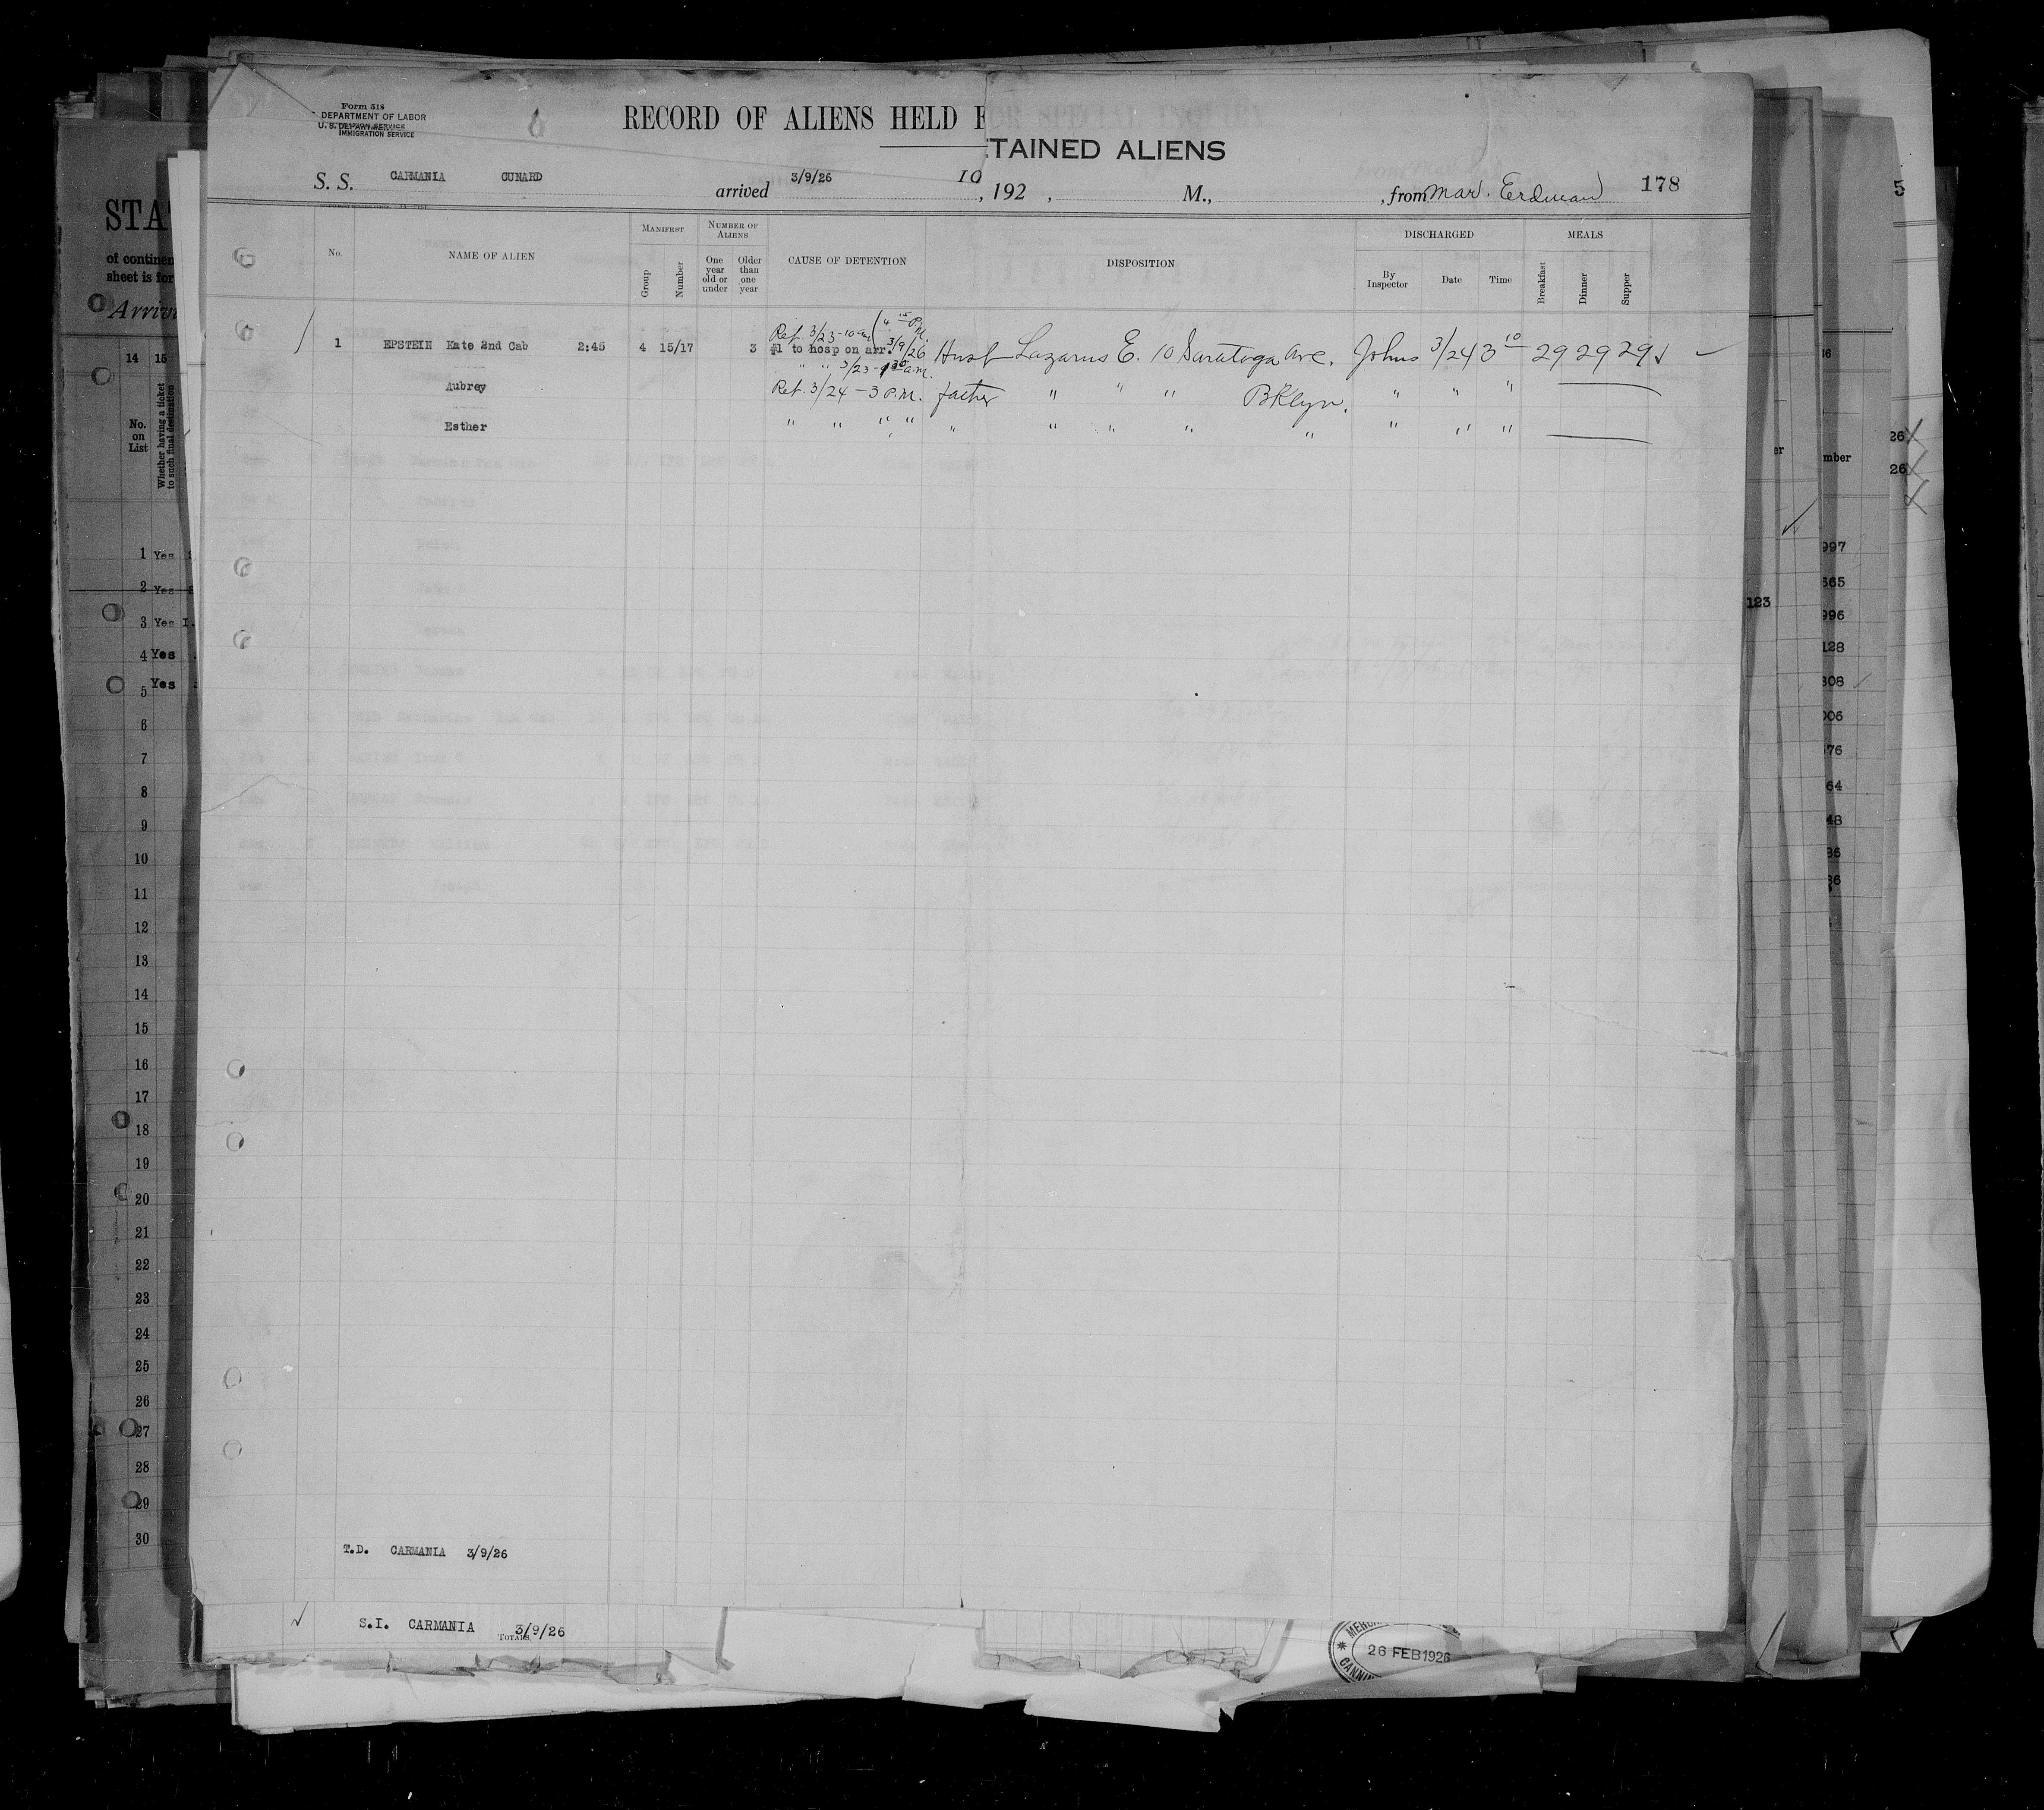 Form 518
DEPARTMENT OF LABOR
IMMIGRATION SERVICE
RECORD OF ALIENS HELD F
TAINED ALIENS
S. S. CARMANIA CUNARD arrived 3/9/26 10, 192 , M., , from Mar. Erdman 178
No. NAME OF ALIEN MANIFEST Group Number NUMBER OF ALIENS One year old or under Older than one year CAUSE OF DETENTION DISPOSITION DISCHARGED By Inspector Date Time MEALS Breakfast Dinner Supper
Ret 3/23-10 am (4 15 P.M.
1 EPSTEIN Kate 2nd Cab 2:45 4 15/17 3 #1 to hosp on arr. 3/9/26 Husb Lazarus E. 10 Saratoga Ave. Johns 3/24 3 10 29 29 29 ✓
" " 3/23- 30 a.m.
Aubrey Ret. 3/24 - 3 P.M. father " " " Bklyn. " " "
Esther " " " " " " " " " " " "
T.D. CARMANIA 3/9/26
S.I. CARMANIA 3/9/26
TOTALS
26 FEB 1926
STA
of continen
sheet is for
Arriv
14 15
No. on List
Whether having a ticket to such final destination
1 Yes
2 Yes
3 Yes I.
4 Yes
5 Yes
6
7
8
9
10
11
12
13
14
15
16
17
18
19
20
21
22
23
24
25
26
27
28
29
30
5
26
26
er
mber
123
997
365
996
128
308
006
576
64
48